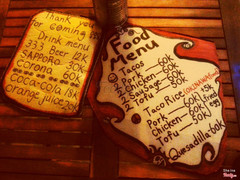 Thank you
for coming
Drink menu
333 Beer 12k
SAPPORO 30k
corona 60k
COCA-COLA 18k
orange juice
Food
Menu
Tacos
2 Pork 60k
2 Chicken 60k
2 Sausage 50k
2 Tofu 50k
Taco Rice
Pork 60k
Chicken 60k
Tofu 50k
+5k
fried
egg
Quesadilla 60k